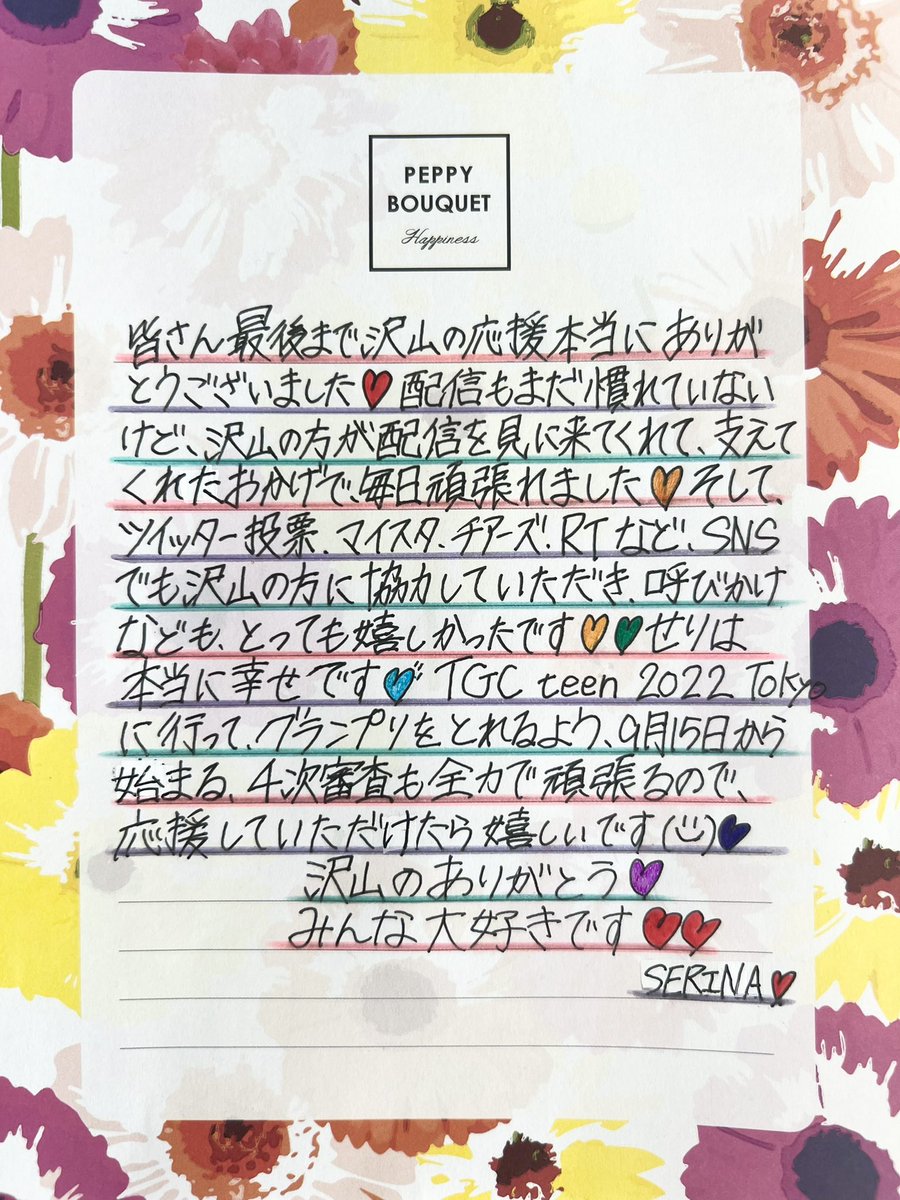 PEPPY
BOUQUET
Happiness
皆さん最後まで沢山の応援本当にありが
とうございました♥配信もまだ慣れていない
けど、沢山の方が配信を見に来てくれて、支えて
くれたおかげで、毎日頑張れました♥そして、
ツイッター投票、マイスタ、チアーズ、RTなど、SNS
でも沢山の方に協力していただき、呼びかけ
なども、とっても嬉しかったです♥♥せりは
本当に幸せです♥TGC teen 2022 Tokyo
に行って、グランプリをとれるよう、9月15日から
始まる、4次審査も全力で頑張るので、
応援していただけたら嬉しいです(☺)♥
沢山のありがとう♥
みんな大好きです♥♥
SERINA♥